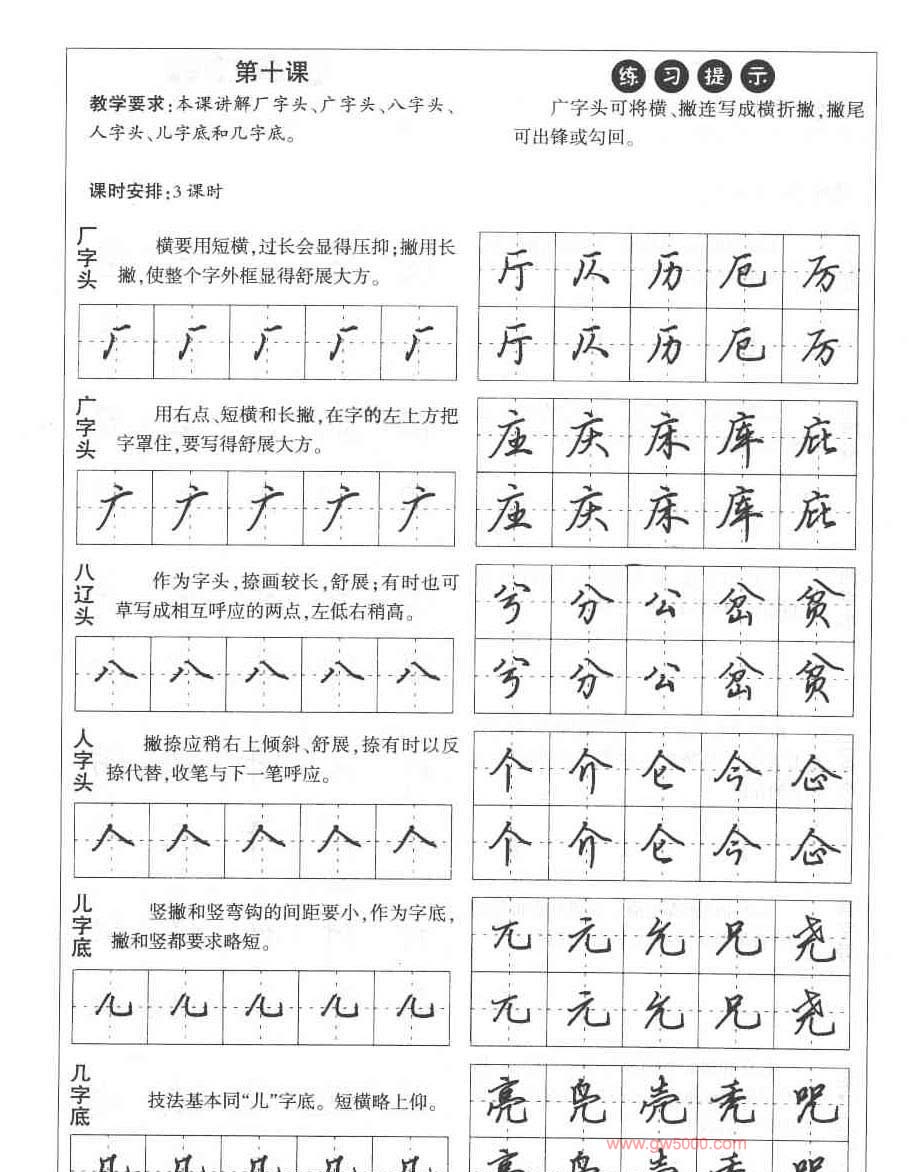 第十课
教学要求:本课讲解厂字头、广字头、八字头、
人字头、儿字底和几字底。
课时安排:3课时
练习提示
广字头可将横、撇连写成横折撇,撇尾
可出锋或勾回。
厂字头
横要用短横,过长会显得压抑;撇用长
撇,使整个字外框显得舒展大方。
厂厂厂厂厂
厅仄历厄厉
厅仄历厄厉
广字头
用右点、短横和长撇,在字的左上方把
字罩住,要写得舒展大方。
广广广广广
座庆床库庇
座庆床库庇
八辽头
作为字头,捺画较长,舒展;有时也可
草写成相互呼应的两点,左低右稍高。
八八八八八
兮分公岔贫
兮分公岔贫
人字头
撇捺应稍右上倾斜、舒展,捺有时以反
捺代替,收笔与下一笔呼应。
人人人人人
个介仑今
个介仑今
儿字底
竖撇和竖弯钩的间距要小,作为字底,
撇和竖都要求略短。
儿儿儿儿儿
兀元允兄尧
兀元允兄尧
几字底
技法基本同“儿”字底。短横略上仰。
亮凫壳秃咒
www.gw5000.com